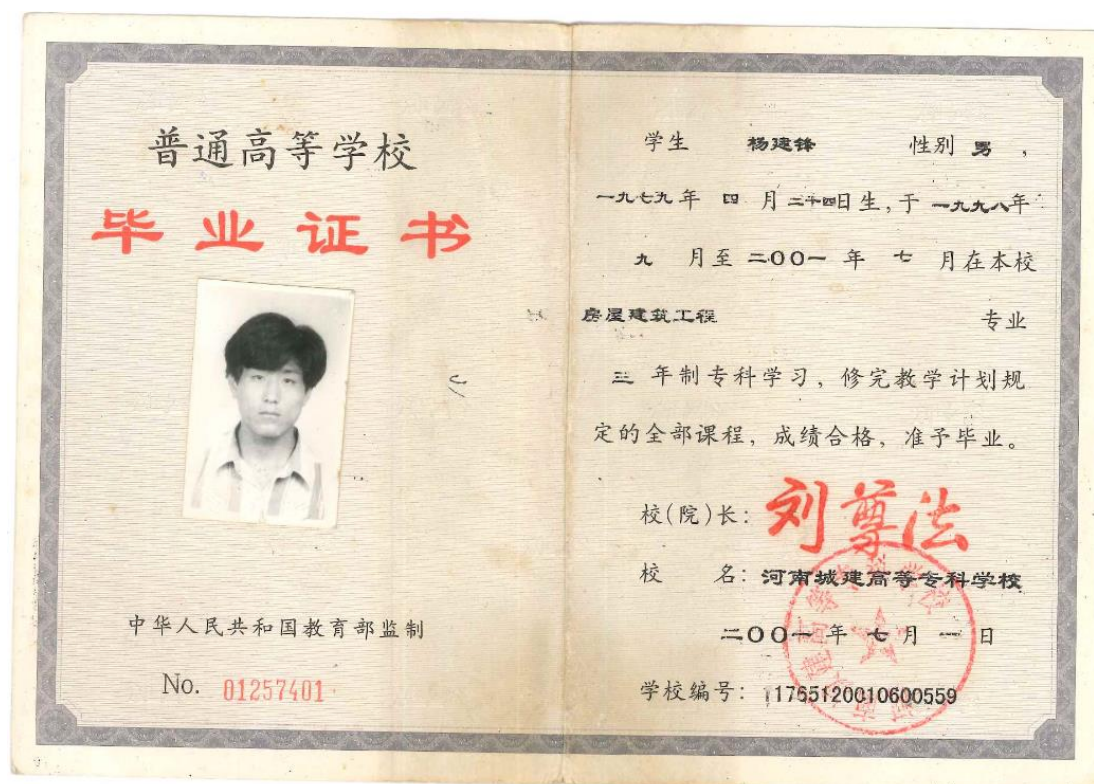 普通高等学校
毕业证书
中华人民共和国教育部监制
No. 01257401
学生 杨建锋 性别 男，
一九七九年 四 月二十四日生，于 一九九八年
九 月至 二〇〇一 年 七 月在本校
房屋建筑工程 专业
三 年制专科学习，修完教学计划规
定的全部课程，成绩合格，准予毕业。
校(院)长：刘尊法
校 名：河南城建高等专科学校
二〇〇一 年 七 月 一 日
学校编号：11765120010600559